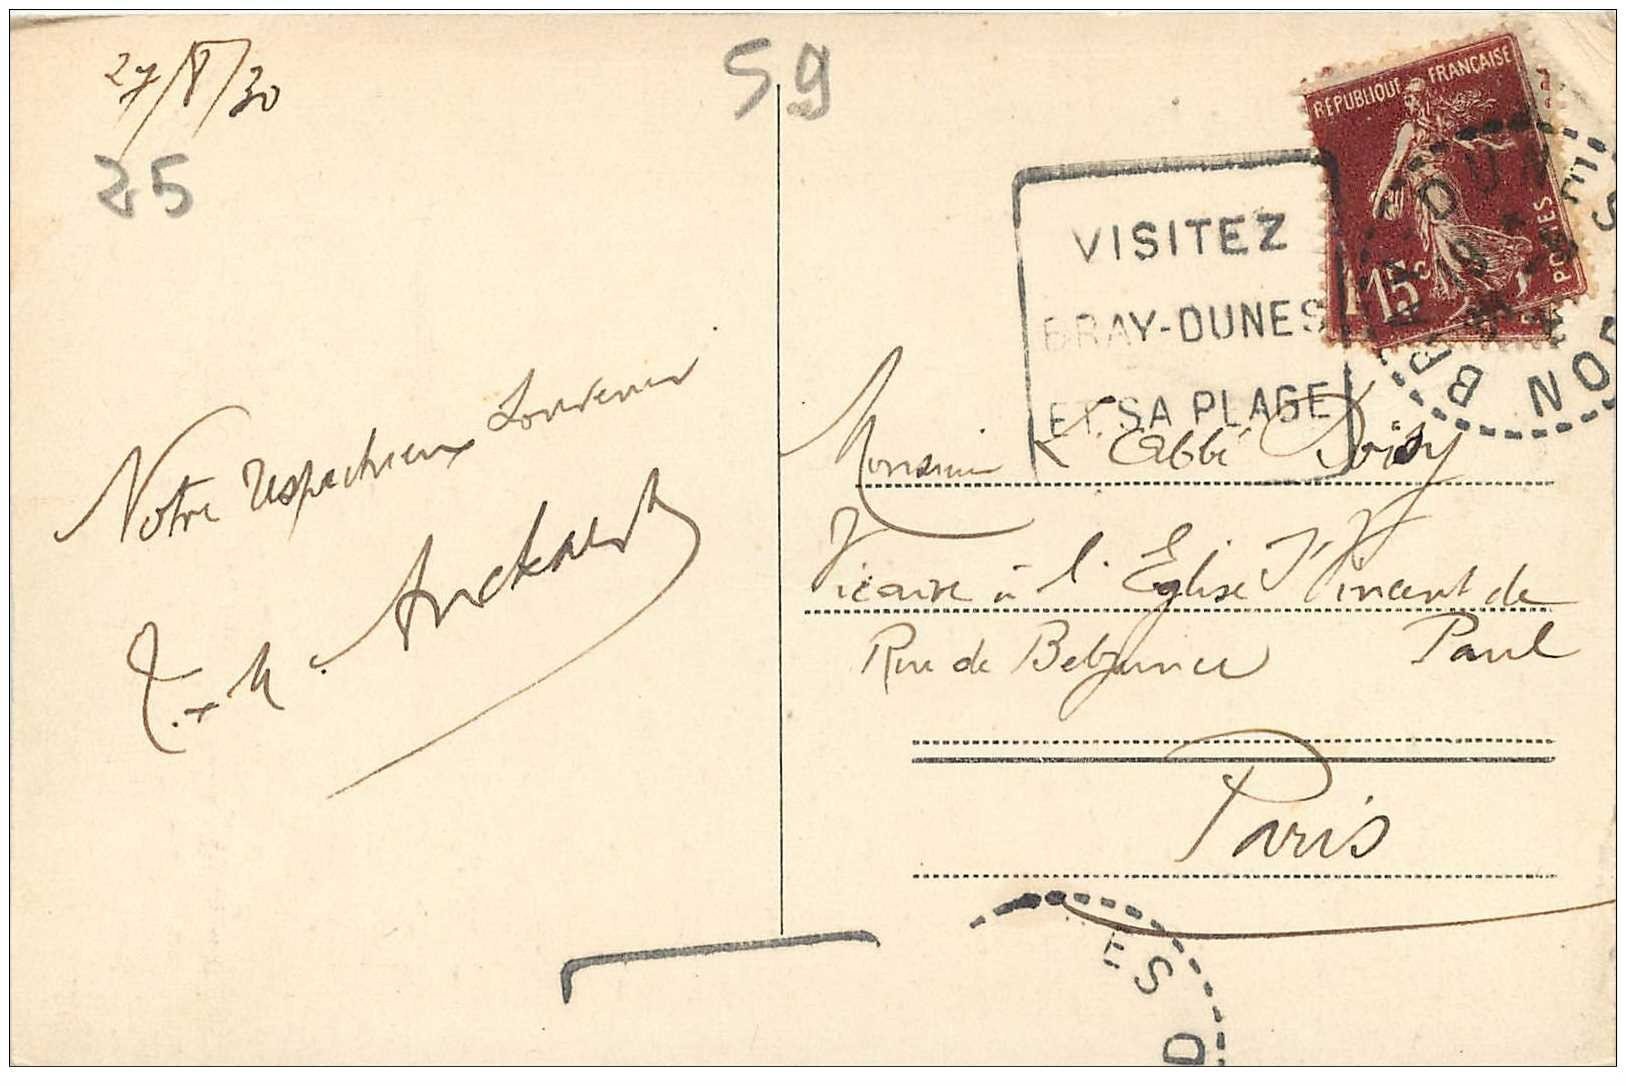 27/8/30
25
59
RÉPUBLIQUE FRANÇAISE
15c
POSTES
VISITEZ
BRAY-DUNES
ET SA PLAGE
Notre respectueux souvenir
Monsieur L'Abbé Doisy
Vicaire à l'Eglise St Vincent de
Paul
Rue de Belzunce
Paris
ES D